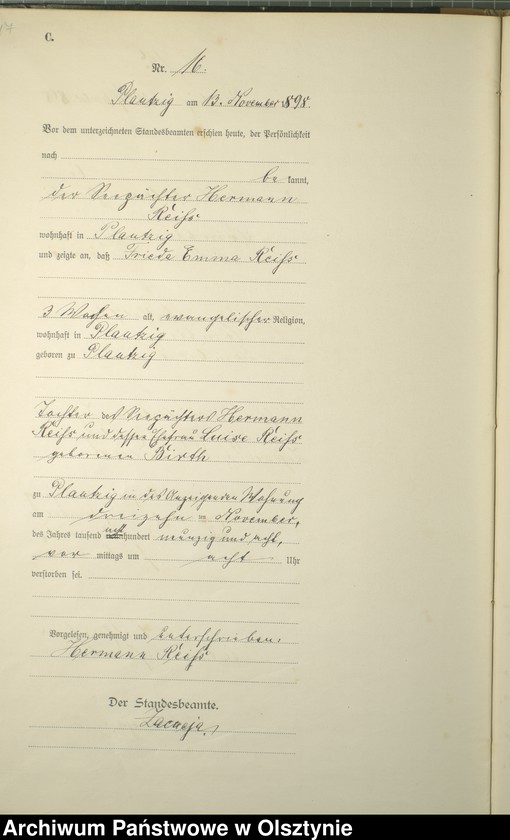 C.
Nr. 16.
Plautzig am 13. November 1898.
Vor dem unterzeichneten Standesbeamten erschien heute, der Persönlichkeit
nach
be kannt,
der Seepächter Hermann
Reihs
wohnhaft in Plautzig
und zeigte an, daß Frieda Emma Reihs
3 Wochen alt, evangelischer Religion,
wohnhaft in Plautzig
geboren zu Plautzig
Tochter des Seepächters Hermann
Reihs und dessen Ehefrau Luise Reihs
geborenen Birth
zu Plautzig in des Anzeigenden Wohnung
am dreizehn November,
des Jahres tausend acht hundert neunzig und acht,
vor mittags um acht Uhr
verstorben sei.
Vorgelesen, genehmigt und unterschrieben.
Hermann Reihs
Der Standesbeamte.
Archiwum Państwowe w Olsztynie